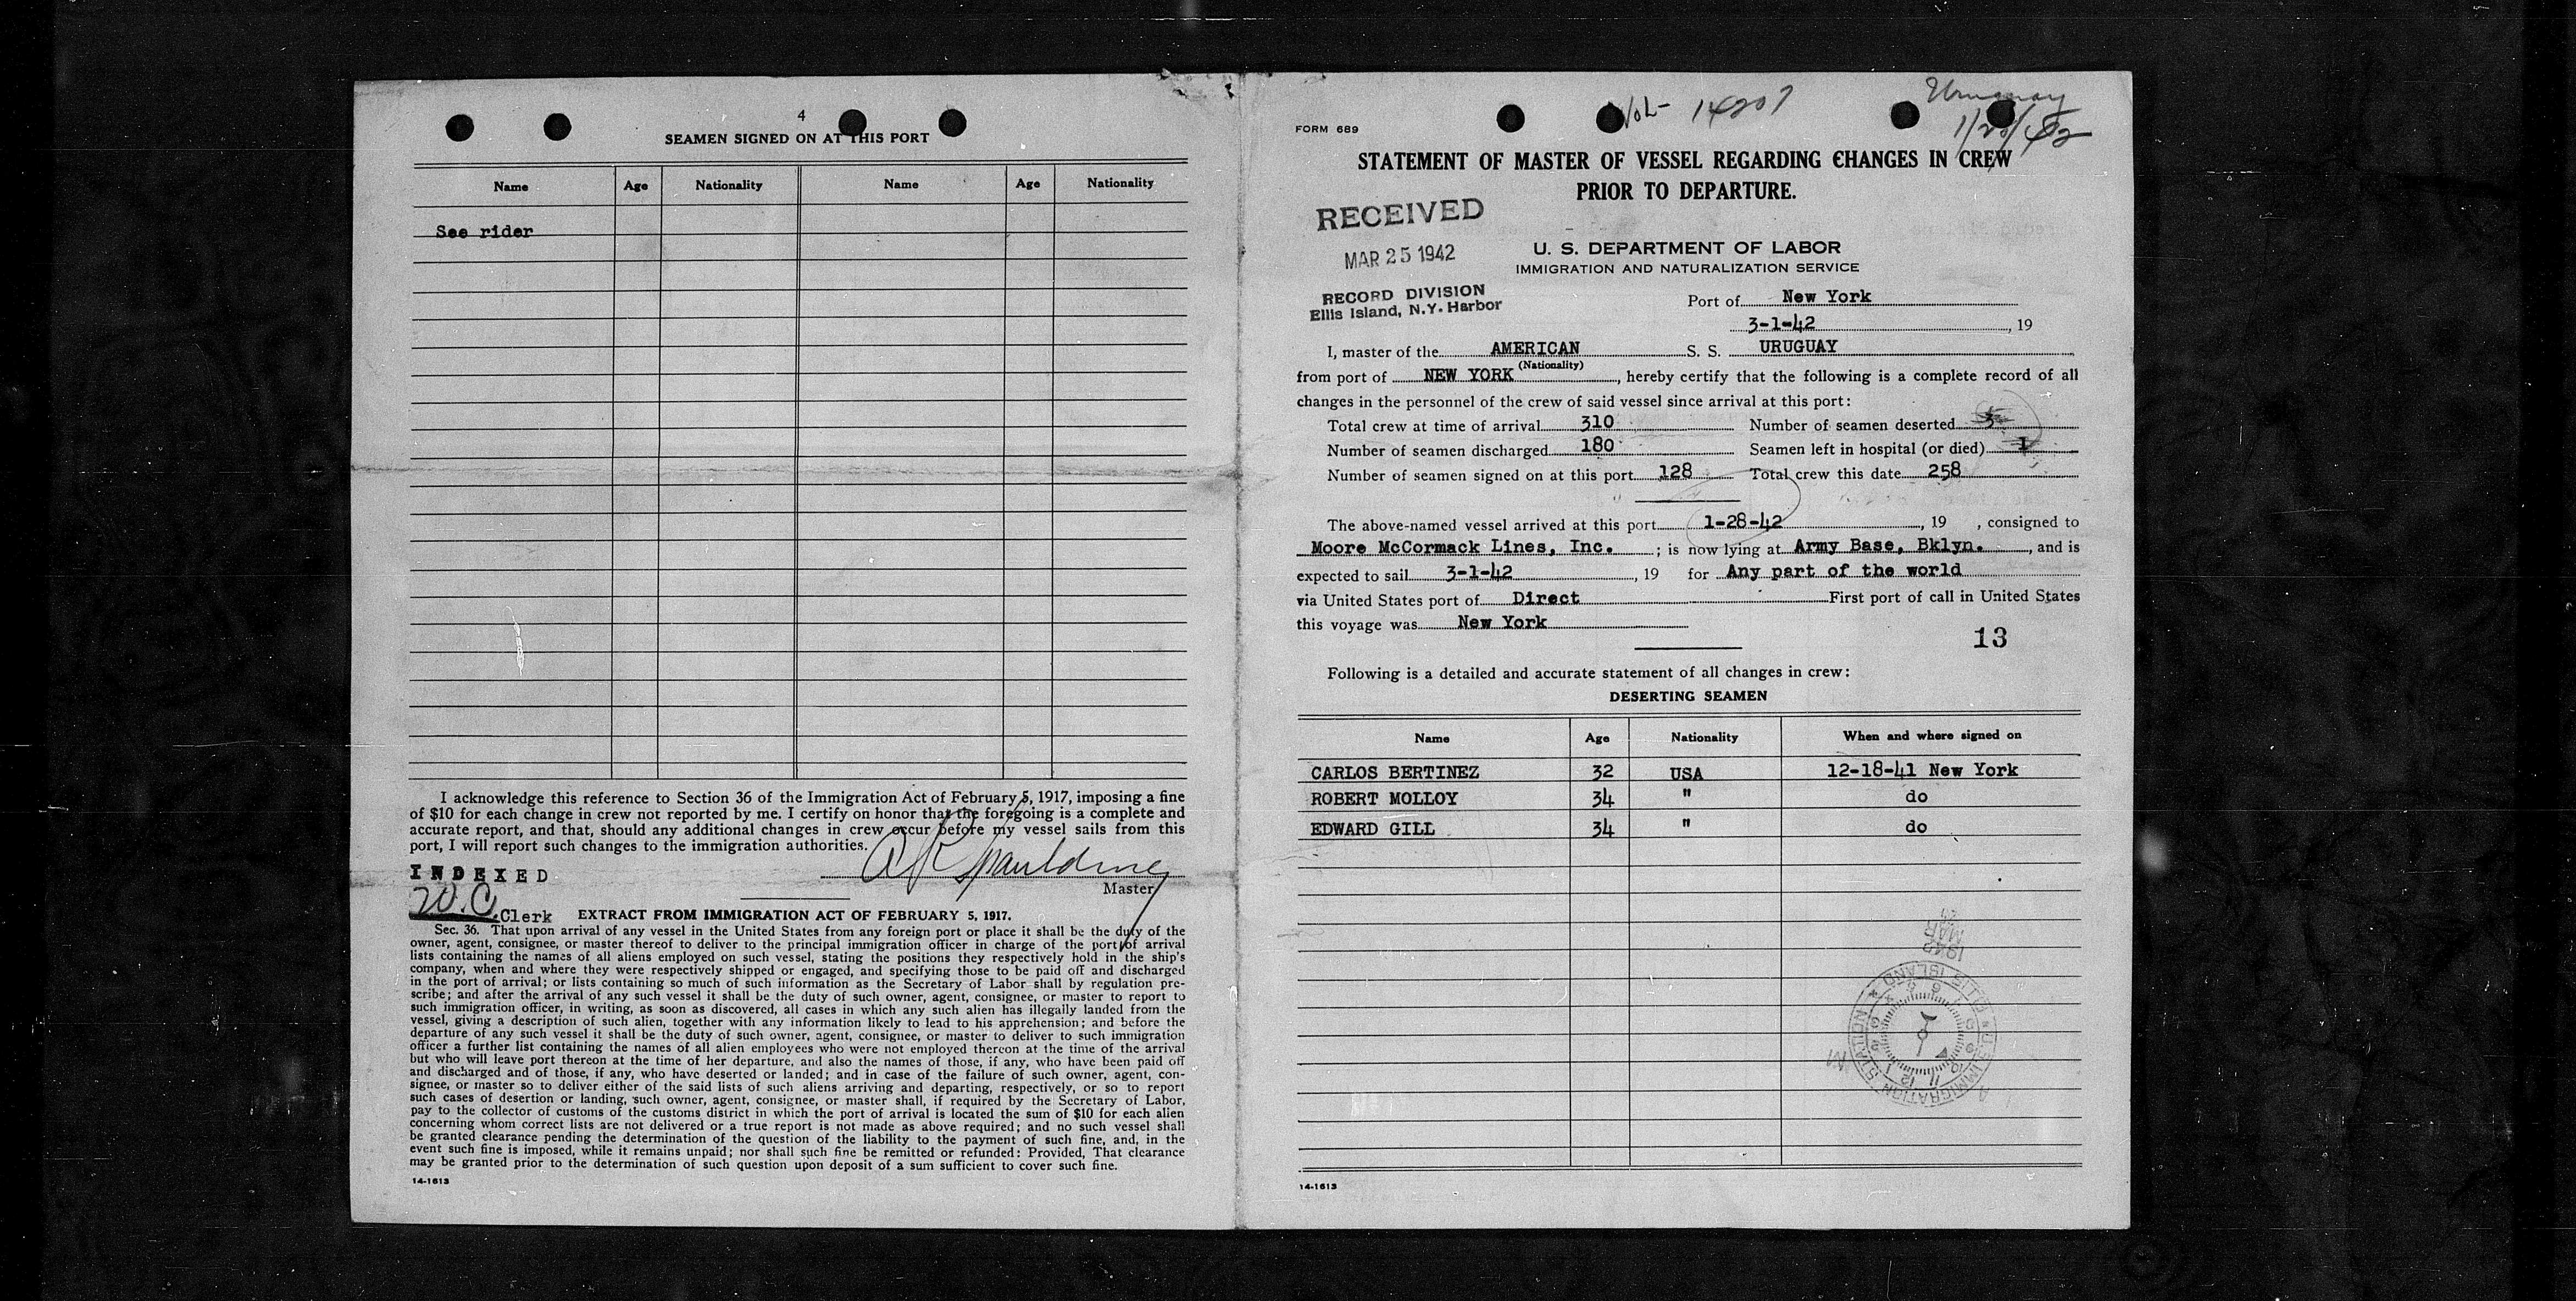 4
SEAMEN SIGNED ON AT THIS PORT
Name Age Nationality Name Age Nationality
See rider
I acknowledge this reference to Section 36 of the Immigration Act of February 5, 1917, imposing a fine
of $10 for each change in crew not reported by me. I certify on honor that the foregoing is a complete and
accurate report, and that, should any additional changes in crew occur before my vessel sails from this
port, I will report such changes to the immigration authorities.
A R Spaulding
Master
INDEXED
W.C. Clerk
EXTRACT FROM IMMIGRATION ACT OF FEBRUARY 5, 1917.
Sec. 36. That upon arrival of any vessel in the United States from any foreign port or place it shall be the duty of the
owner, agent, consignee, or master thereof to deliver to the principal immigration officer in charge of the port of arrival
lists containing the names of all aliens employed on such vessel, stating the positions they respectively hold in the ship's
company, when and where they were respectively shipped or engaged, and specifying those to be paid off and discharged
in the port of arrival; or lists containing so much of such information as the Secretary of Labor shall by regulation pre-
scribe; and after the arrival of any such vessel it shall be the duty of such owner, agent, consignee, or master to report to
such immigration officer, in writing, as soon as discovered, all cases in which any such alien has illegally landed from the
vessel, giving a description of such alien, together with any information likely to lead to his apprehension; and before the
departure of any such vessel it shall be the duty of such owner, agent, consignee, or master to deliver to such immigration
officer a further list containing the names of all alien employees who were not employed thereon at the time of the arrival
but who will leave port thereon at the time of her departure, and also the names of those, if any, who have been paid off
and discharged and of those, if any, who have deserted or landed; and in case of the failure of such owner, agent, con-
signee, or master so to deliver either of the said lists of such aliens arriving and departing, respectively, or so to report
such cases of desertion or landing, such owner, agent, consignee, or master shall, if required by the Secretary of Labor,
pay to the collector of customs of the customs district in which the port of arrival is located the sum of $10 for each alien
concerning whom correct lists are not delivered or a true report is not made as above required; and no such vessel shall
be granted clearance pending the determination of the question of the liability to the payment of such fine, and, in the
event such fine is imposed, while it remains unpaid; nor shall such fine be remitted or refunded: Provided, That clearance
may be granted prior to the determination of such question upon deposit of a sum sufficient to cover such fine.
14-1613
Vol- 14207
Uruguay
1/28/42
FORM 689
STATEMENT OF MASTER OF VESSEL REGARDING CHANGES IN CREW
PRIOR TO DEPARTURE.
RECEIVED
MAR 25 1942
RECORD DIVISION
Ellis Island, N.Y. Harbor
U. S. DEPARTMENT OF LABOR
IMMIGRATION AND NATURALIZATION SERVICE
Port of New York
3-1-42, 19
I, master of the AMERICAN S. S. URUGUAY
(Nationality)
from port of NEW YORK, hereby certify that the following is a complete record of all
changes in the personnel of the crew of said vessel since arrival at this port:
Total crew at time of arrival 310 Number of seamen deserted 3
Number of seamen discharged 180 Seamen left in hospital (or died) 1
Number of seamen signed on at this port 128 Total crew this date 258
The above-named vessel arrived at this port 1-28-42, 19 , consigned to
Moore McCormack Lines, Inc. ; is now lying at Army Base, Bklyn. , and is
expected to sail 3-1-42, 19 for Any part of the world
via United States port of Direct First port of call in United States
this voyage was New York
13
Following is a detailed and accurate statement of all changes in crew:
DESERTING SEAMEN
Name Age Nationality When and where signed on
CARLOS BERTINEZ 32 USA 12-18-41 New York
ROBERT MOLLOY 34 " do
EDWARD GILL 34 " do
1942
MAR
U.S. IMMIGRATION STATION
ELLIS ISLAND
14-1613